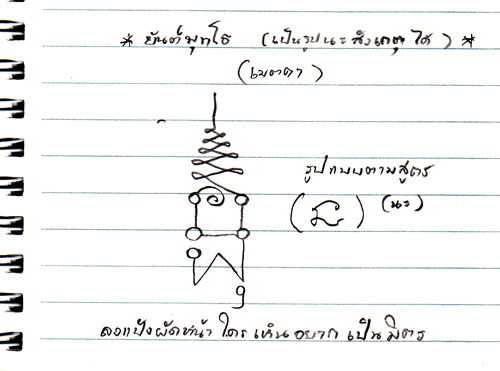 * ยันต์พุทโธ (เป็นรูปนะสังเกตุได้) *
(เมตตา)
รูปแบบตามสูตร
( ) (นะ)
ลงแป้งผัดหน้า ใครเห็นอยากเป็นมิตร